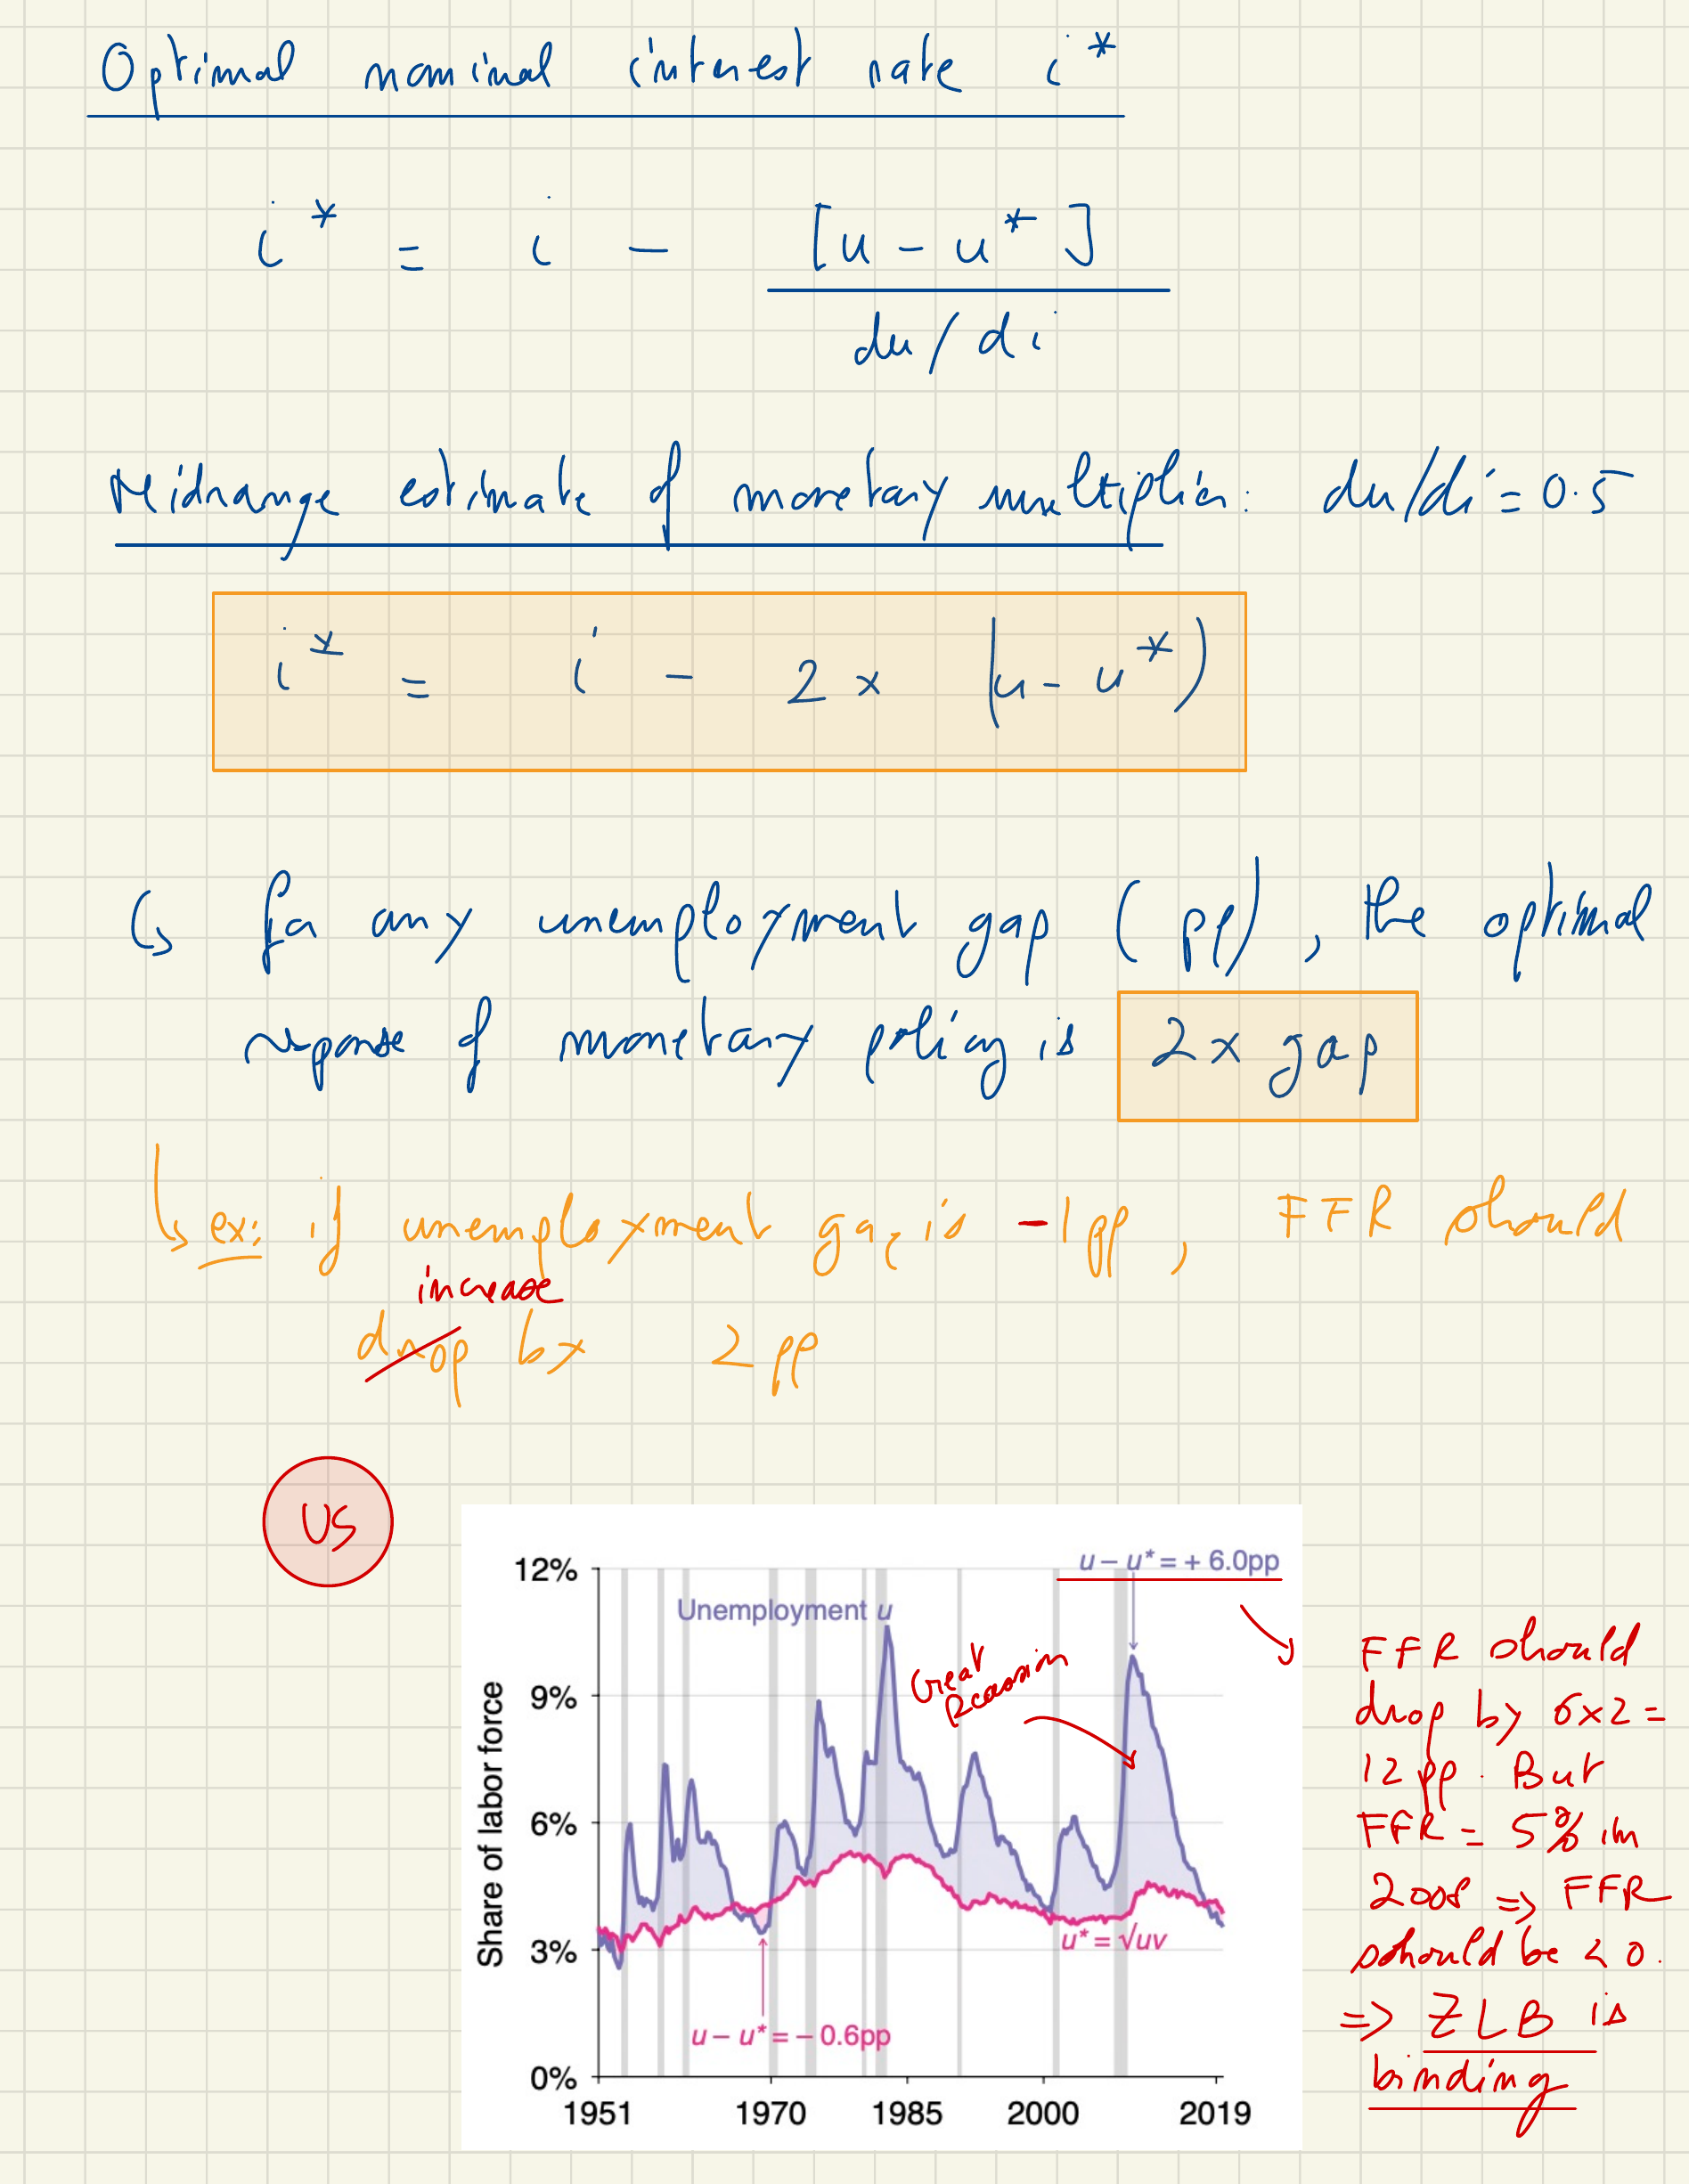 Optimal nominal interest rate i*
i* = i - [u - u*]
du/di
Midrange estimate of monetary multiplier: du/di = 0.5
i* = i - 2 x (u - u*)
↳ for any unemployment gap (pp), the optimal
response of monetary policy is 2 x gap
↳ ex: if unemployment gap is -1 pp, FFR should
increase
drop by 2 pp
US
12%
9%
6%
3%
0%
Share of labor force
1951 1970 1985 2000 2019
Unemployment u
u - u* = + 6.0pp
Great
Recession
u* = √uv
u - u* = - 0.6pp
FFR should
drop by 6x2 =
12 pp. But
FFR = 5% in
2008 => FFR
should be < 0.
=> ZLB is
binding